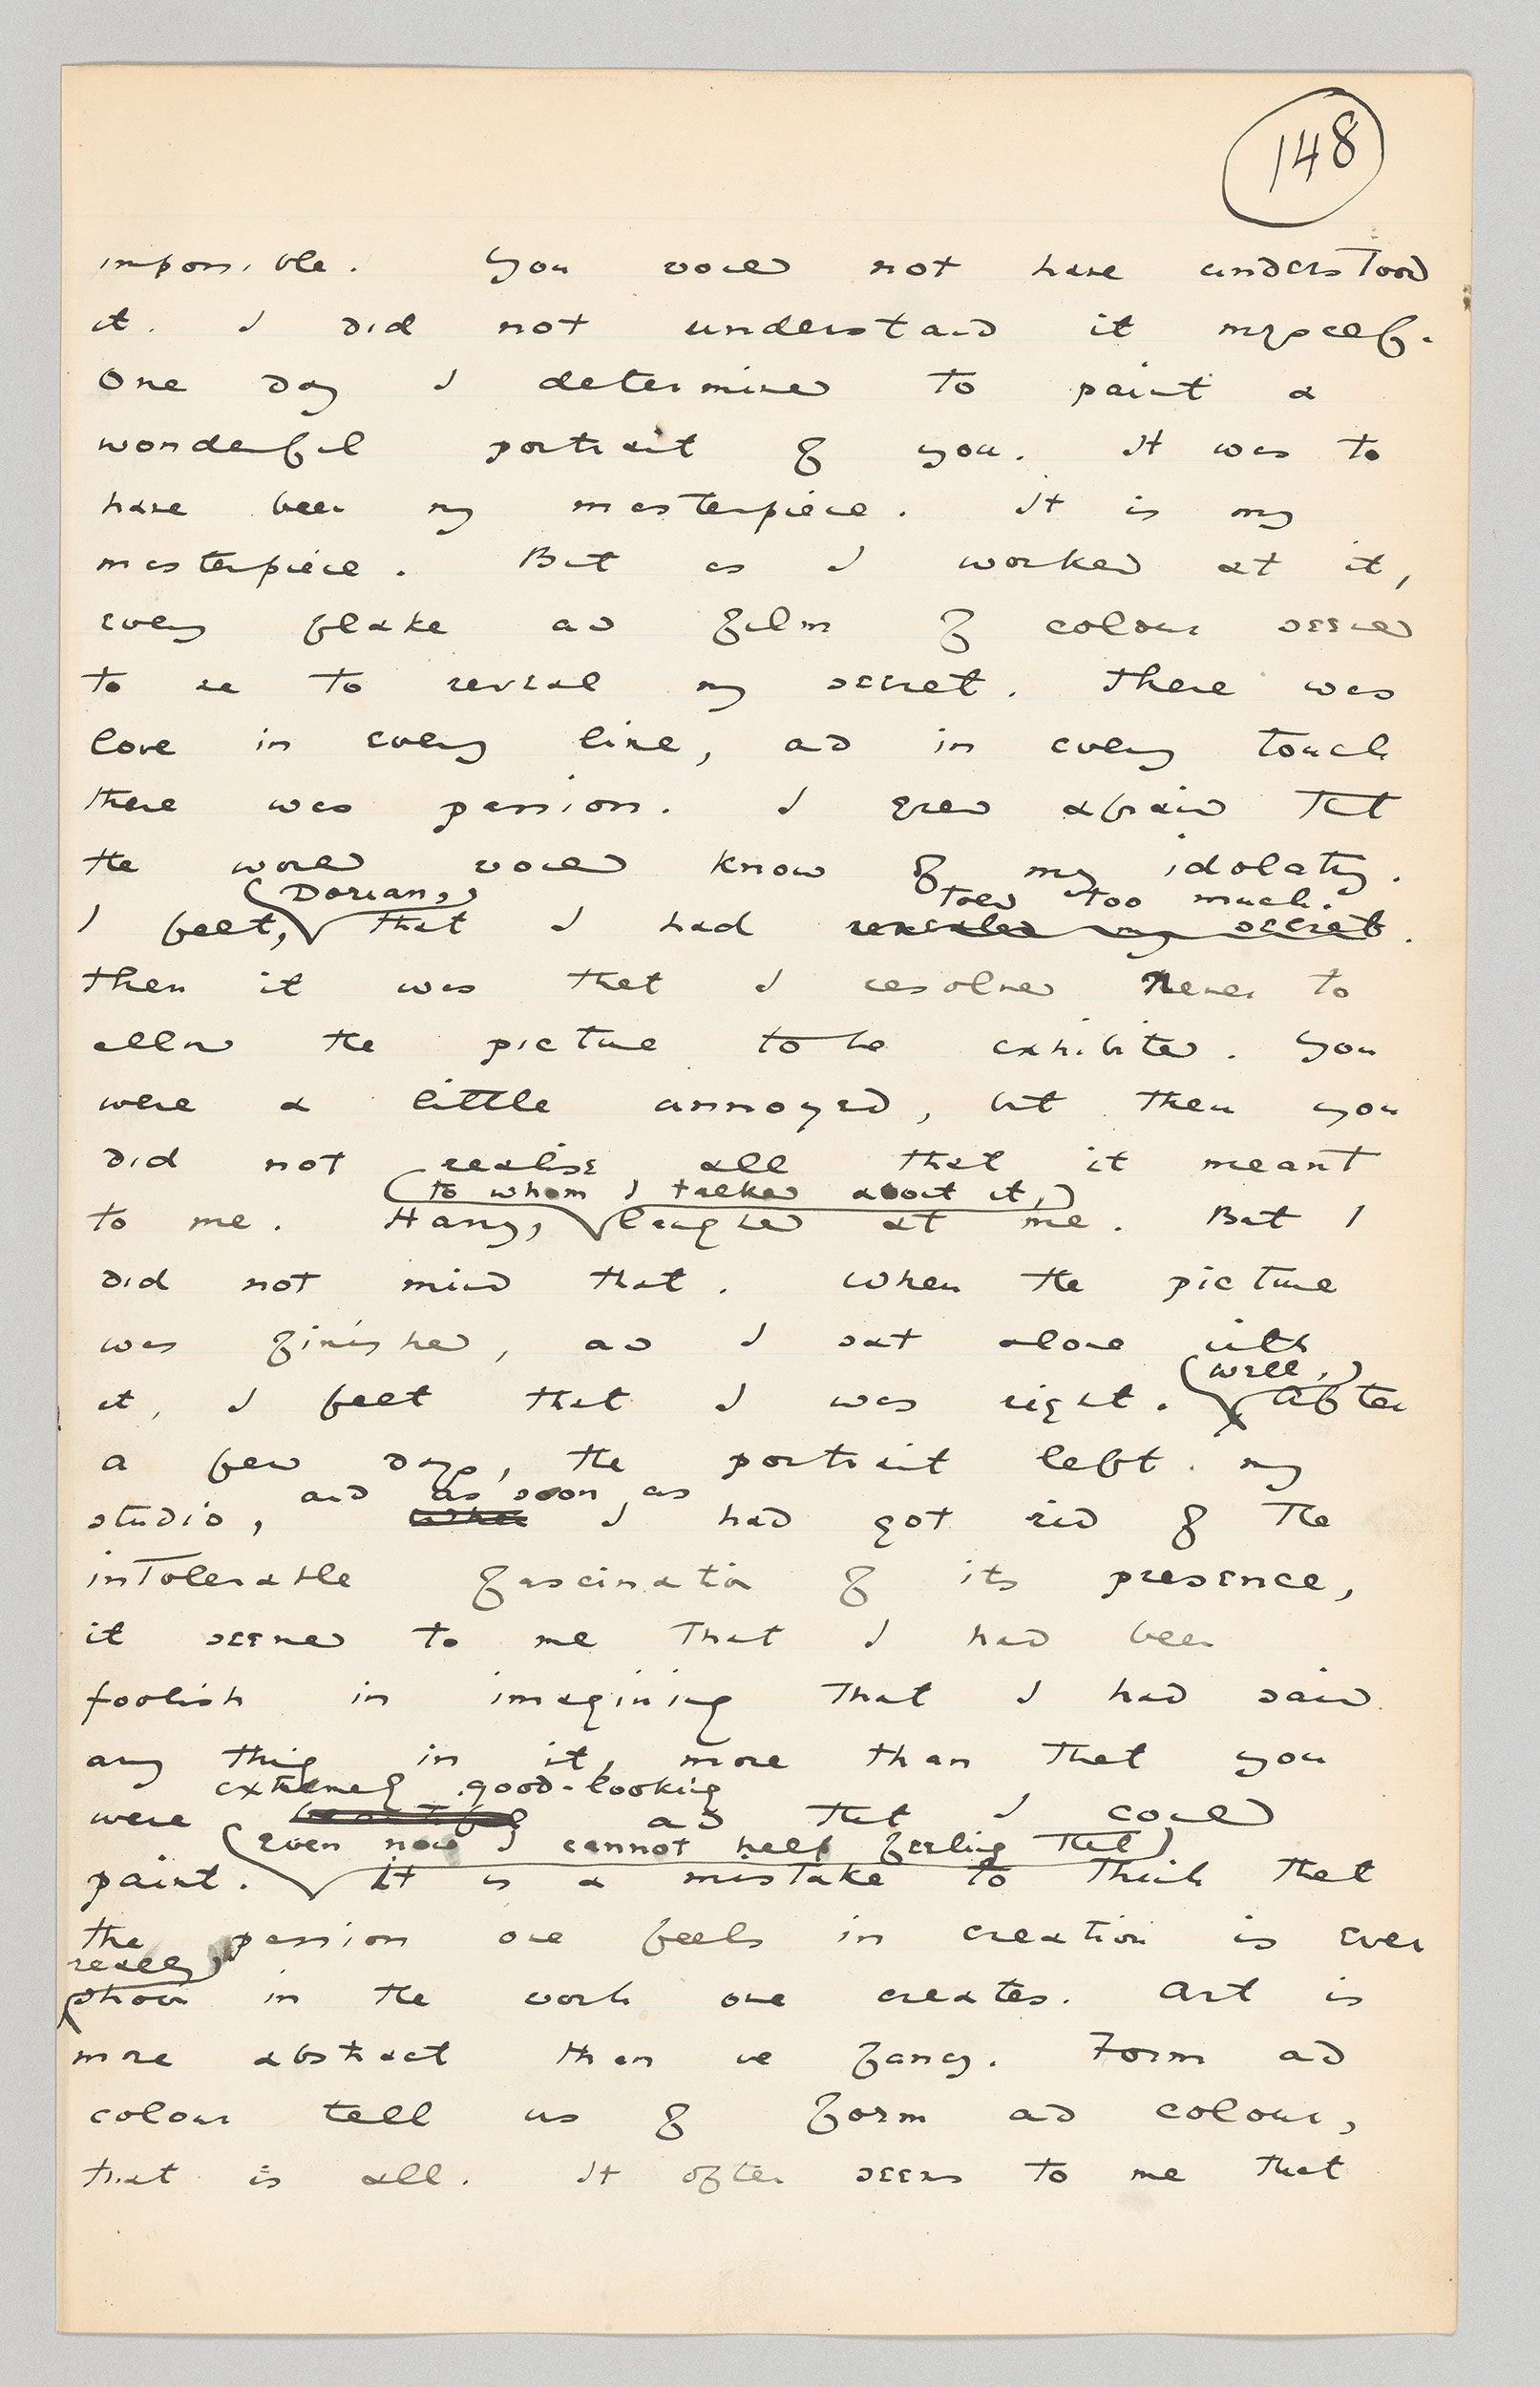 148
impossible. You would not have understood
it. I did not understand it myself.
One day I determined to paint a
wonderful portrait of you. It was to
have been my masterpiece. It is my
masterpiece. But as I worked at it,
every flake and film of colour seemed
to me to reveal my secret. There was
love in every line, and in every touch
there was passion. I grew afraid that
the world would know of my idolatry.
Dorian, told too much.
I felt, that I had revealed my secret.
Then it was that I resolved never to
allow the picture to be exhibited. You
were a little annoyed, but then you
did not realise all that it meant
to whom I talked about it,
to me. Harry, laughed at me. But I
did not mind that. When the picture
was finished, and I sat alone with
well,
it, I felt that I was right. After
a few days, the portrait left my
and as soon as
studio, when I had got rid of the
intolerable fascination of its presence,
it seemed to me that I had been
foolish in imagining that I had said
any thing in it, more than that you
extremely good-looking
were beautiful and that I could
even now I cannot help feeling that
paint. It is a mistake to think that
the passion one feels in creation is ever
really
shown in the work one creates. Art is
more abstract than we fancy. Form and
colour tell us of form and colour,
that is all. It often seems to me that